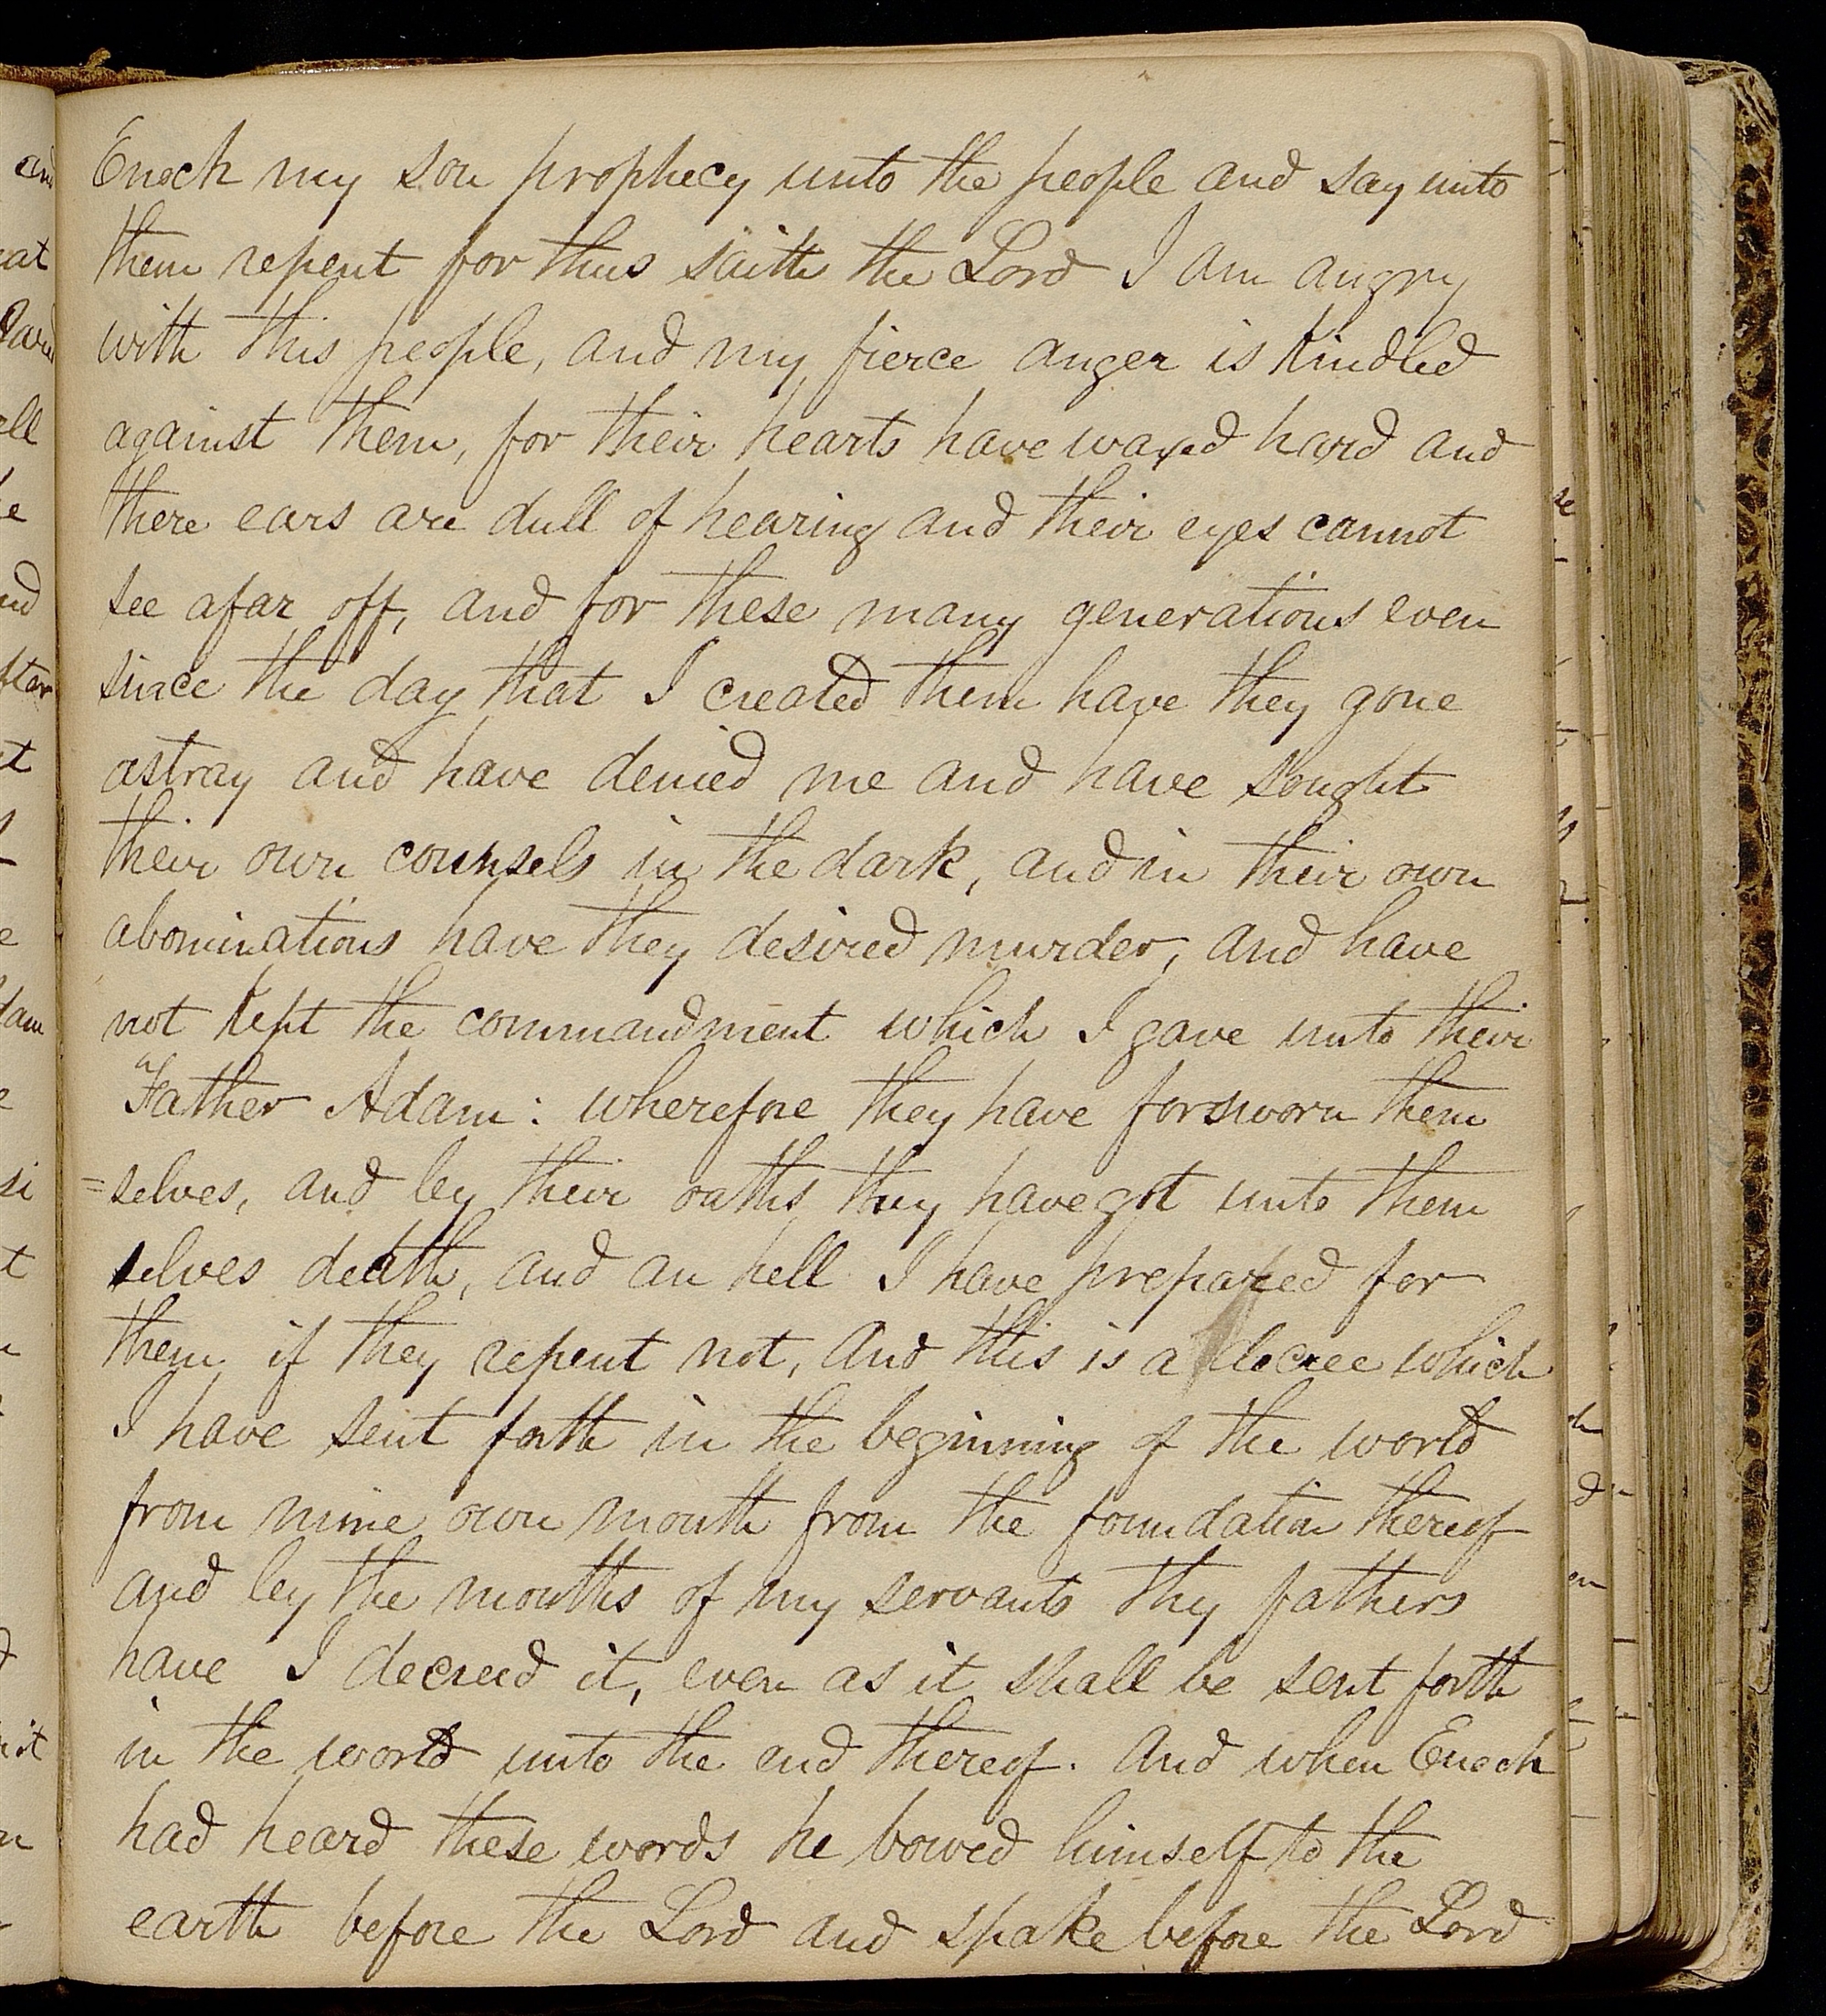 Enoch my son prophecy unto the people and say unto
them repent for thus saith the Lord I am angry
with this people, and my fierce anger is kindled
against them, for their hearts have waxed hard and
there ears are dull of hearing and their eyes cannot
see afar off, and for these many generations even
since the day that I created them have they gone
astray and have denied me and have sought
their own counsels in the dark, and in their own
abominations have they desired murder, and have
not kept the commandment which I gave unto their
Father Adam: wherefore they have forsworn them
=selves, and by their oaths they have got unto them
selves death, and an hell I have prepared for
them if they repent not, and this is a decree which
I have sent forth in the beginning of the world
from mine own mouth from the foundation thereof
and by the mouths of my servants thy fathers
have I decreed it, even as it shall be sent forth
in the world unto the end thereof. And when Enoch
had heard these words he bowed himself to the
earth before the Lord and spake before the Lord